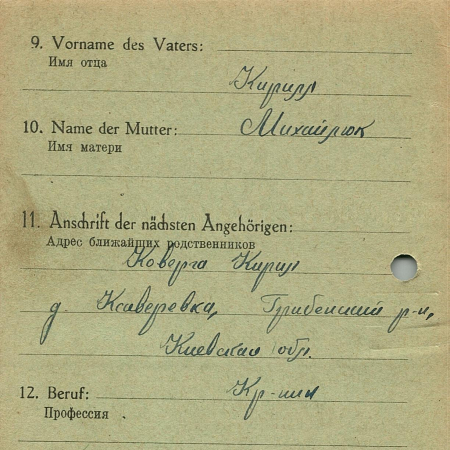 9. Vorname des Vaters:
Имя отца
Кирилл
10. Name der Mutter:
Михайлюк
Имя матери
11. Anschrift der nächsten Angehörigen:
Адрес ближайших родственников
Коверга Кирил
д. Ксаверевка, Грибенский р-н,
Киевская обл.
12. Beruf:
Кр-нин
Профессия